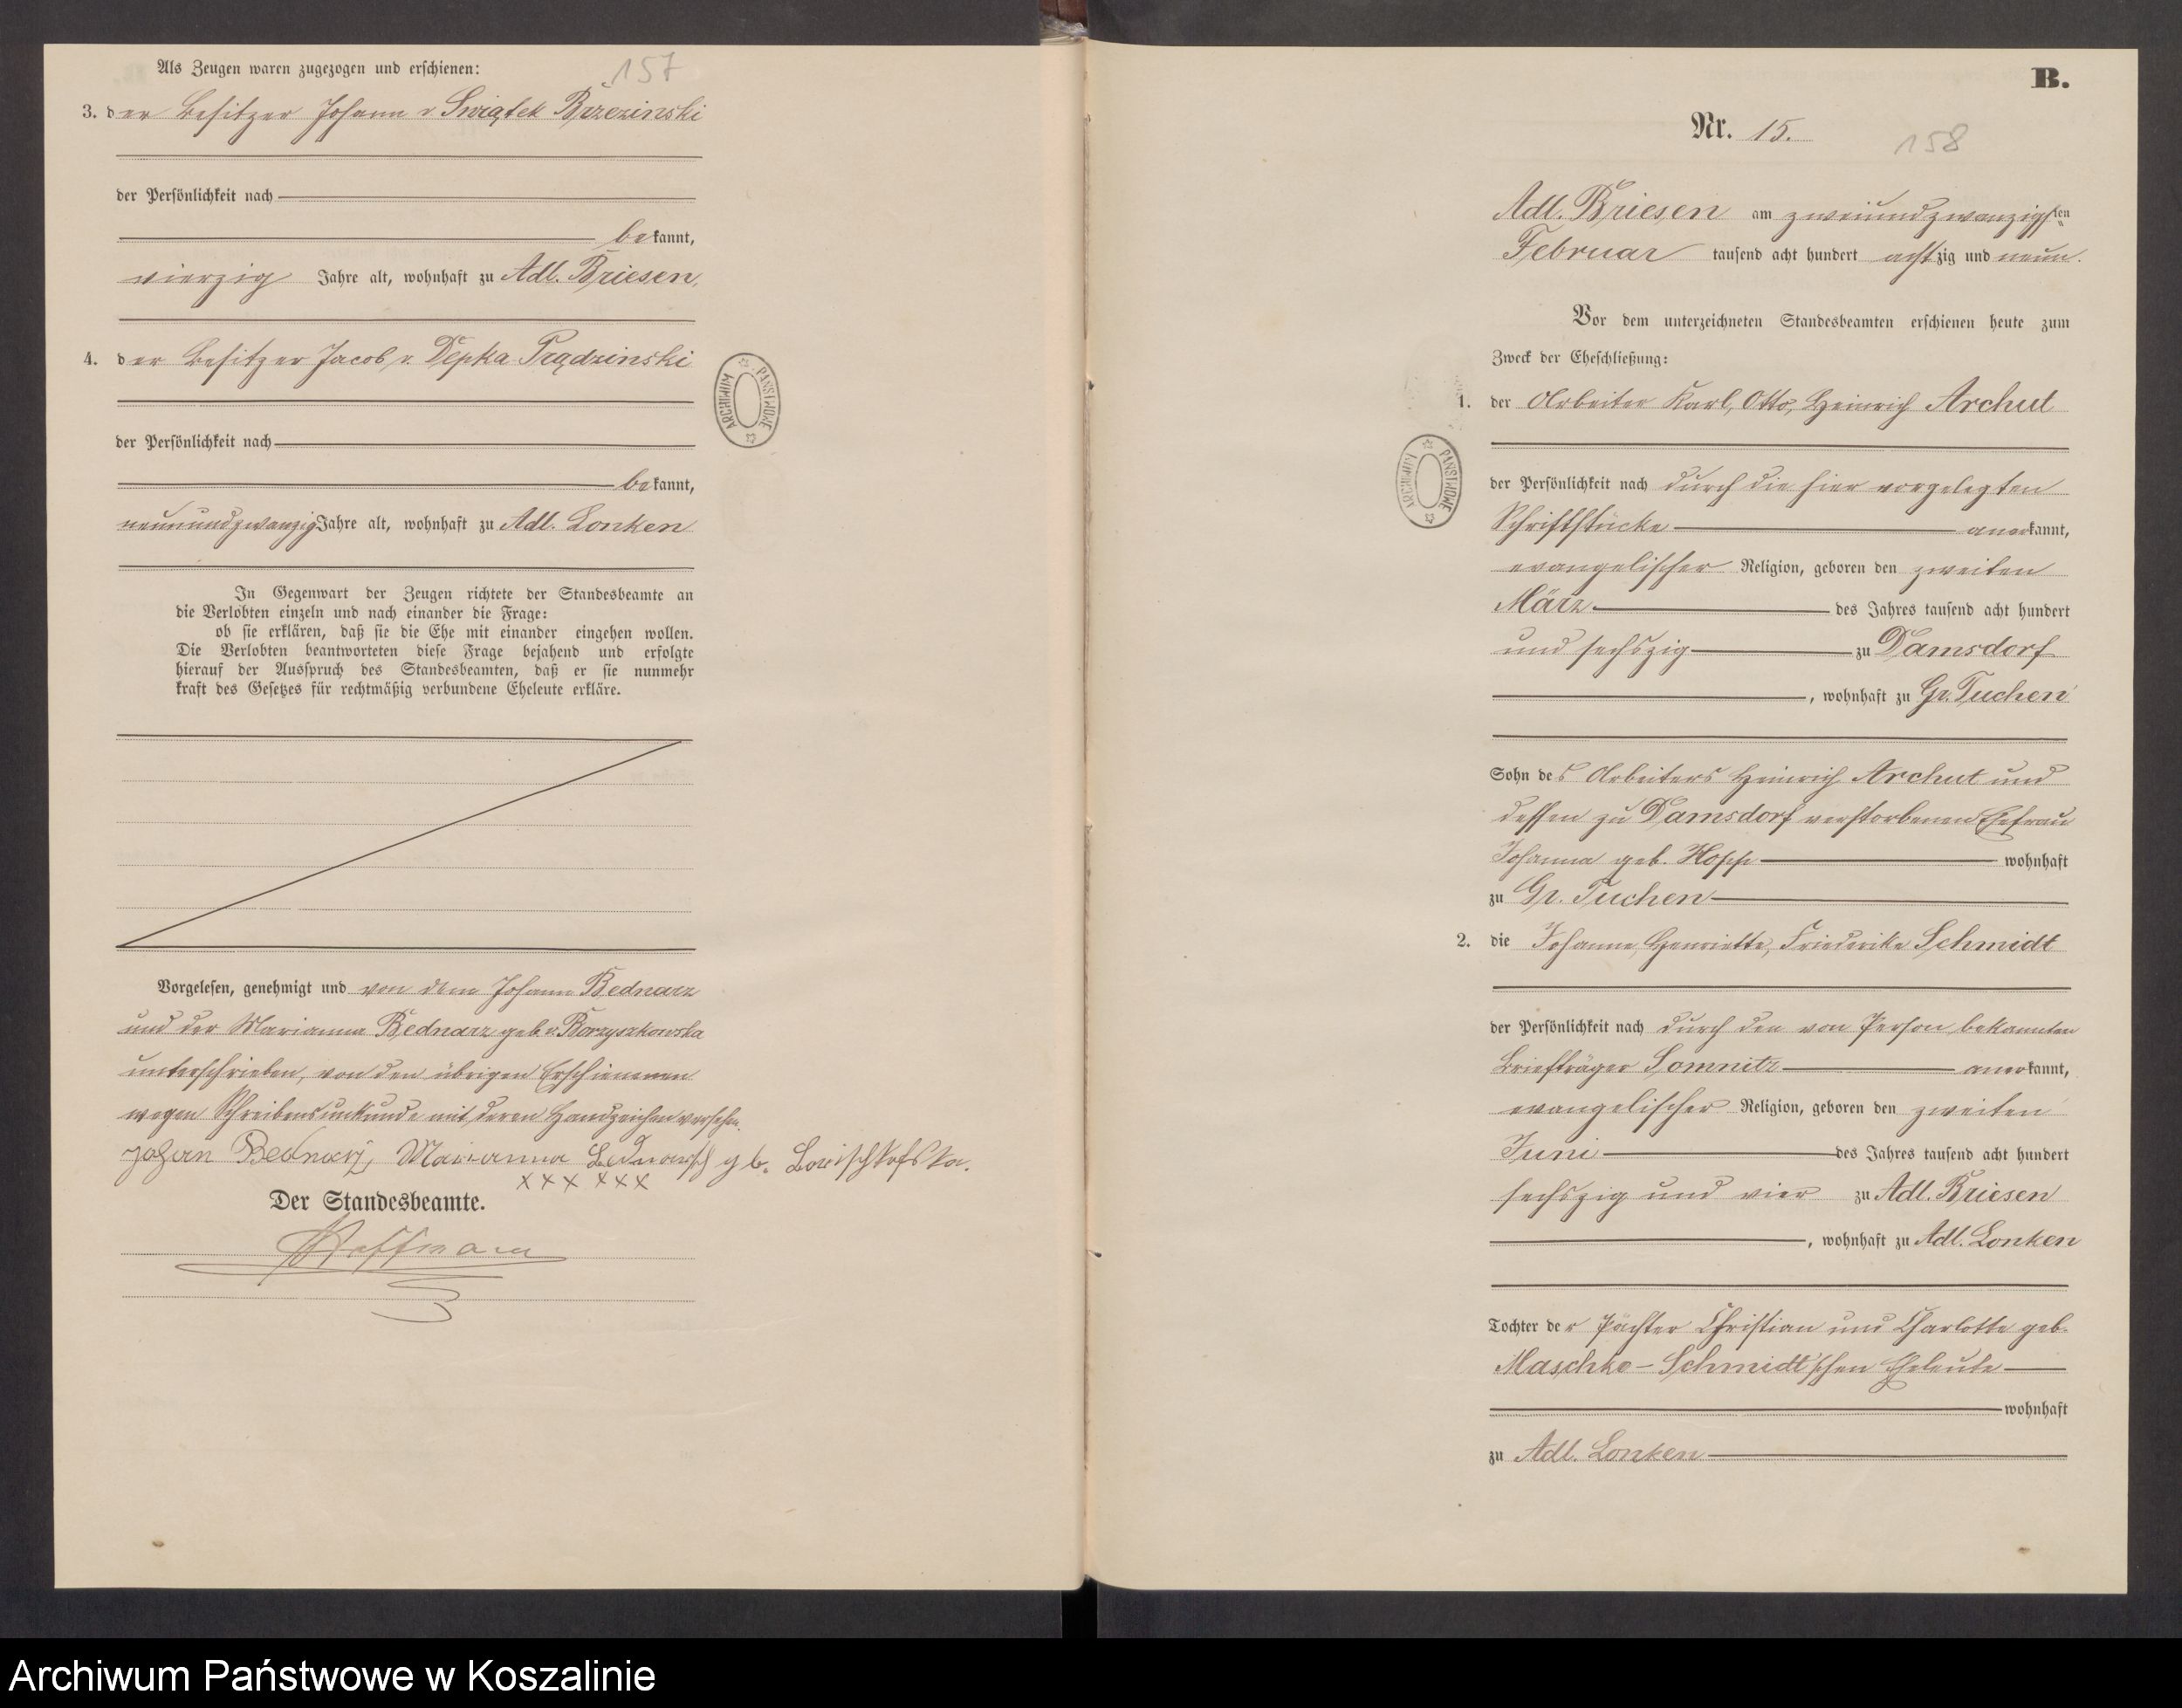 Als Zeugen waren zugezogen und erschienen:
157
3. der Besitzer Johann v Swiątek Brzezinski
der Persönlichkeit nach
bekannt,
vierzig Jahre alt, wohnhaft zu Adl. Briesen,
4. der Besitzer Jacob v. Depka Prądzinski
der Persönlichkeit nach
bekannt,
neunundzwanzig Jahre alt, wohnhaft zu Adl. Lonken
In Gegenwart der Zeugen richtete der Standesbeamte an
die Verlobten einzeln und nach einander die Frage:
ob sie erklären, daß sie die Ehe mit einander eingehen wollen.
Die Verlobten beantworteten diese Frage bejahend und erfolgte
hierauf der Ausspruch des Standesbeamten, daß er sie nunmehr
kraft des Gesetzes für rechtmäßig verbundene Eheleute erkläre.
Vorgelesen, genehmigt und von dem Johann Bednarz
und der Marianna Bednarz geb. v. Borzyszkowska
unterschrieben, von den übrigen Erschienenen
wegen Schreibensunkunde mit deren Handzeichen versehen.
Johan Bednarz, Marianna Bednarsch gb.
xxx xxx
Der Standesbeamte.
Hoffmann
ARCHIWUM PAŃSTWOWE
B.
Nr. 15.
158
Adl. Briesen am zweiundzwanzigsten
Februar tausend acht hundert achtzig und neun.
Vor dem unterzeichneten Standesbeamten erschienen heute zum
Zweck der Eheschließung:
1. der Arbeiter Karl, Otto, Heinrich Archut
der Persönlichkeit nach durch die hier vorgelegten
Schriftstücke anerkannt,
evangelischer Religion, geboren den zweiten
März des Jahres tausend acht hundert
und sechszig zu Damsdorf
, wohnhaft zu Gr. Tuchen
Sohn des Arbeiters Heinrich Archut und
dessen zu Damsdorf verstorbenen Ehefrau
Johanna geb. Hopp wohnhaft
zu Gr. Tuchen
2. die Johanne, Henriette, Friederike Schmidt
der Persönlichkeit nach durch den von Person bekannten
Briefträger Somnitz anerkannt,
evangelischer Religion, geboren den zweiten
Juni des Jahres tausend acht hundert
sechszig und vier zu Adl. Briesen
, wohnhaft zu Adl. Lonken
Tochter der Pächter Christian und Charlotte geb.
Maschke-Schmidt'schen Eheleute
wohnhaft
zu Adl. Lonken
ARCHIWUM PAŃSTWOWE
Archiwum Państwowe w Koszalinie